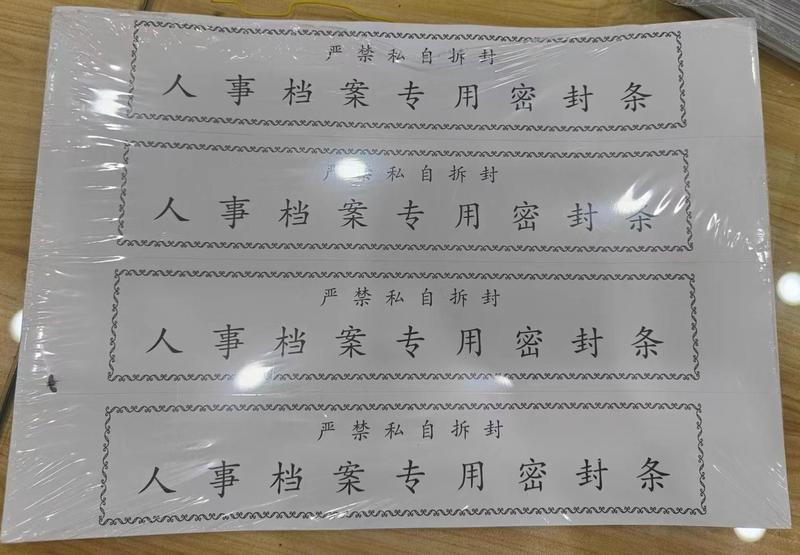 严禁私自拆封
人事档案专用密封条
严禁私自拆封
人事档案专用密封条
严禁私自拆封
人事档案专用密封条
严禁私自拆封
人事档案专用密封条